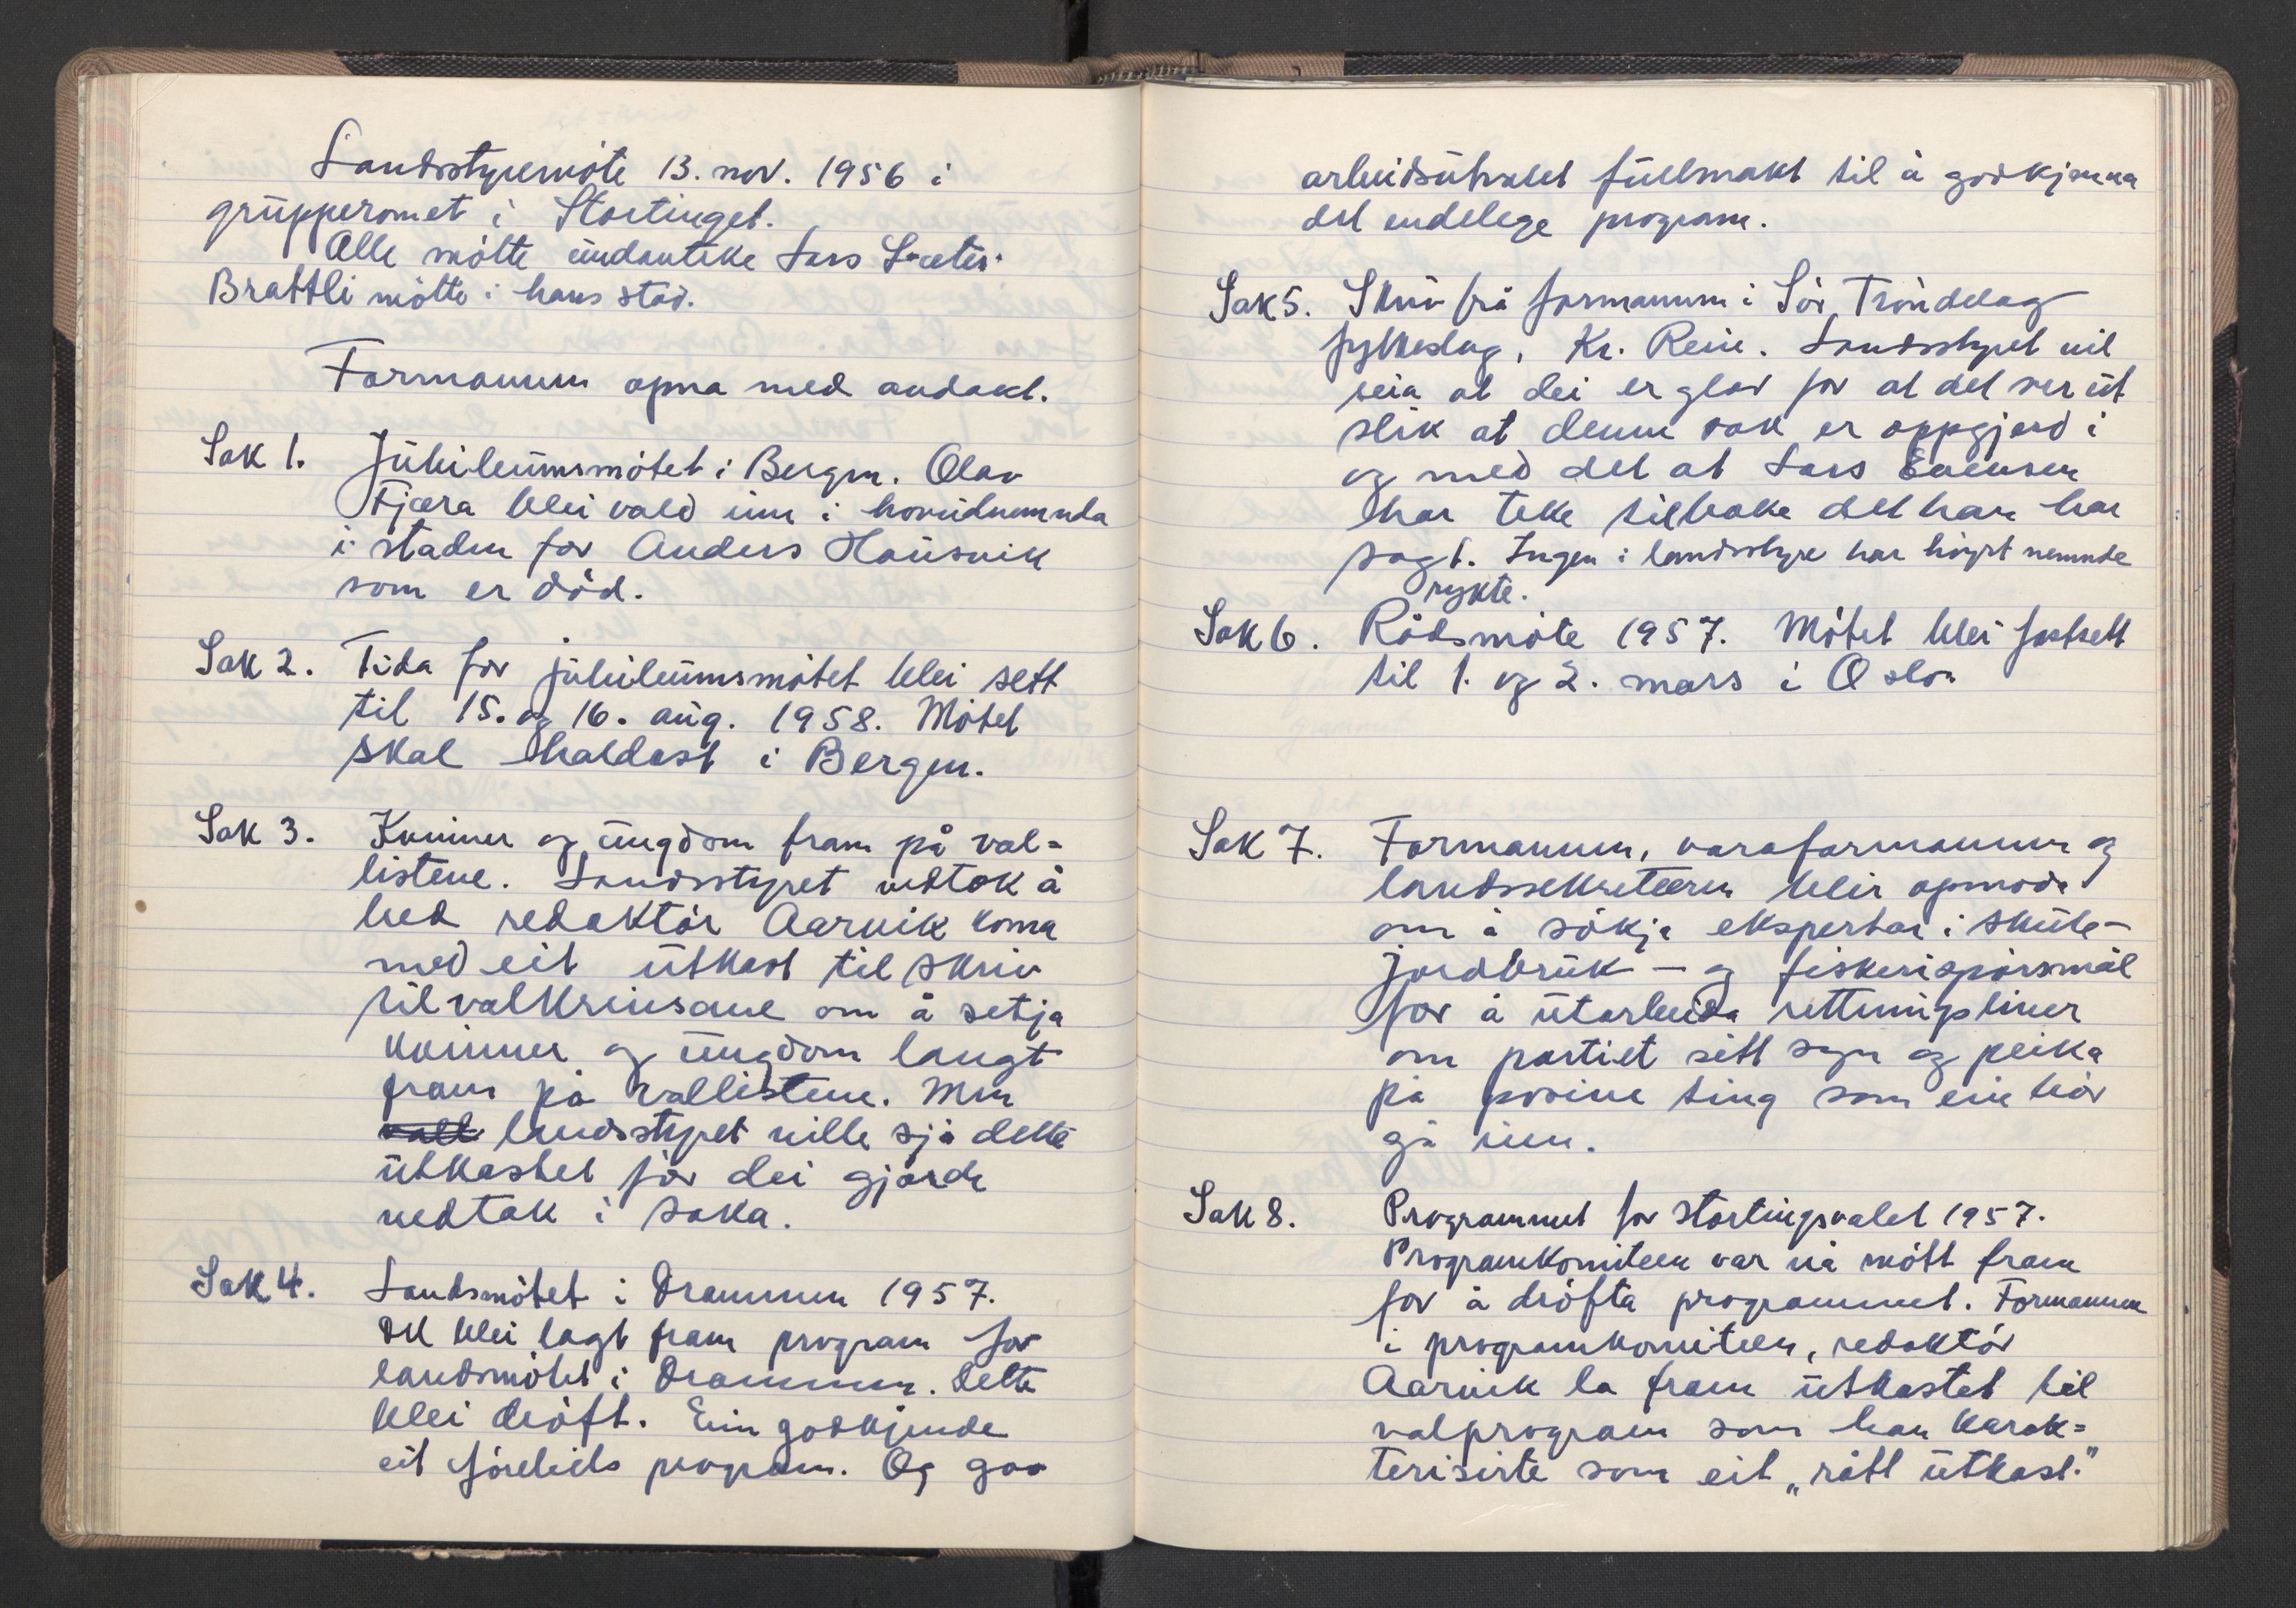 Landsstyremöte 13. nov. 1956 i
grupperomet i Stortinget.
Alle mötte undanteke Lars Sæter.
Brattli mötte i hans stad.
Formannen opna med andakt.
Sak 1. Jubileumsmötet i Bergen. Olav
Fjæra blei vald inn i hovudnemnda
i staden for Anders Hausvik
som er död.
Sak 2. Tida for jubileumsmötet blei sett
til 15. og 16. aug. 1958. Mötet
skal haldast i Bergen.
Sak 3. Kvinner og ungdom fram på val=
listene. Landsstyret vedtok å
bed redaktör Aarvik koma
med eit utkast til skriv
til valkrinsane om å setja
kvinner og ungdom langt
fram på vallistene. Men
landsstyret ville sjå dette
utkastet för dei gjorde
vedtak i saka.
Sak 4. Landsmötet i Drammen 1957.
Det blei lagt fram program for
landsmötet i Drammen. Dette
blei dröft. Ein godkjende
eit förebels program. Og gav
arbeidsutvalet fullmakt til å godkjenna
det endelege program.
Sak 5. Skriv frå formannen i Sör Tröndelag
fylkeslag, Kr. Rein. Landsstyret vil
seia at dei er glad for at det ser ut
slik at denne sak er oppgjord i
og med det at Lars Evensen
har teke tilbake det han har
sagt. Ingen i landsstyre har höyrt nemnde
rykte.
Sak 6. Rådsmöte 1957. Mötet blei fastsett
til 1. og 2. mars i Oslo.
Sak 7. Formannen, varaformannen og
landssekretæren blir opmoda
om å sökja ekspertar i skule-
jordbruk - og fiskerispörsmål
for å utarbeida rettningsliner
om partiet sitt syn og peika
på posive ting som ein bör
gå inn.
Sak 8. Programmet for stortingsvalet 1957.
Programkomiteen var nå mött fram
for å dröfta programmet. Formannen
i programkomiteen, redaktör
Aarvik la fram utkastet til
valprogram som han karak=
teriserte som eit „rått utkast."